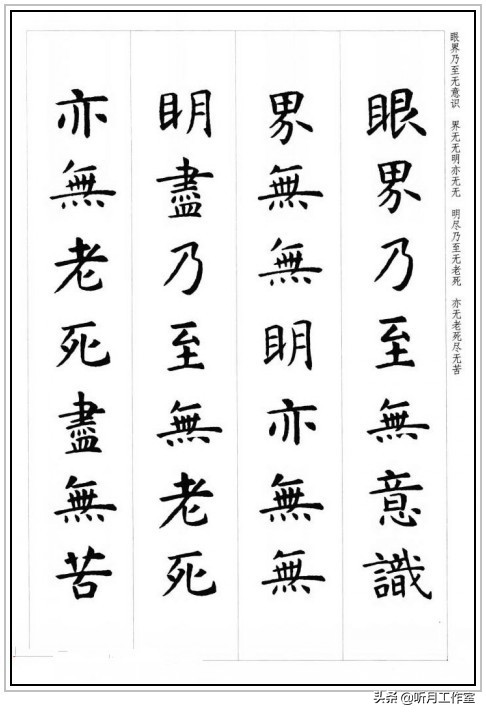 眼界乃至无意识 界无无明亦无无 明尽乃至无老死 亦无老死尽无苦
眼界乃至無意識
界無無明亦無無
明盡乃至無老死
亦無老死盡無苦
头条 @听月工作室